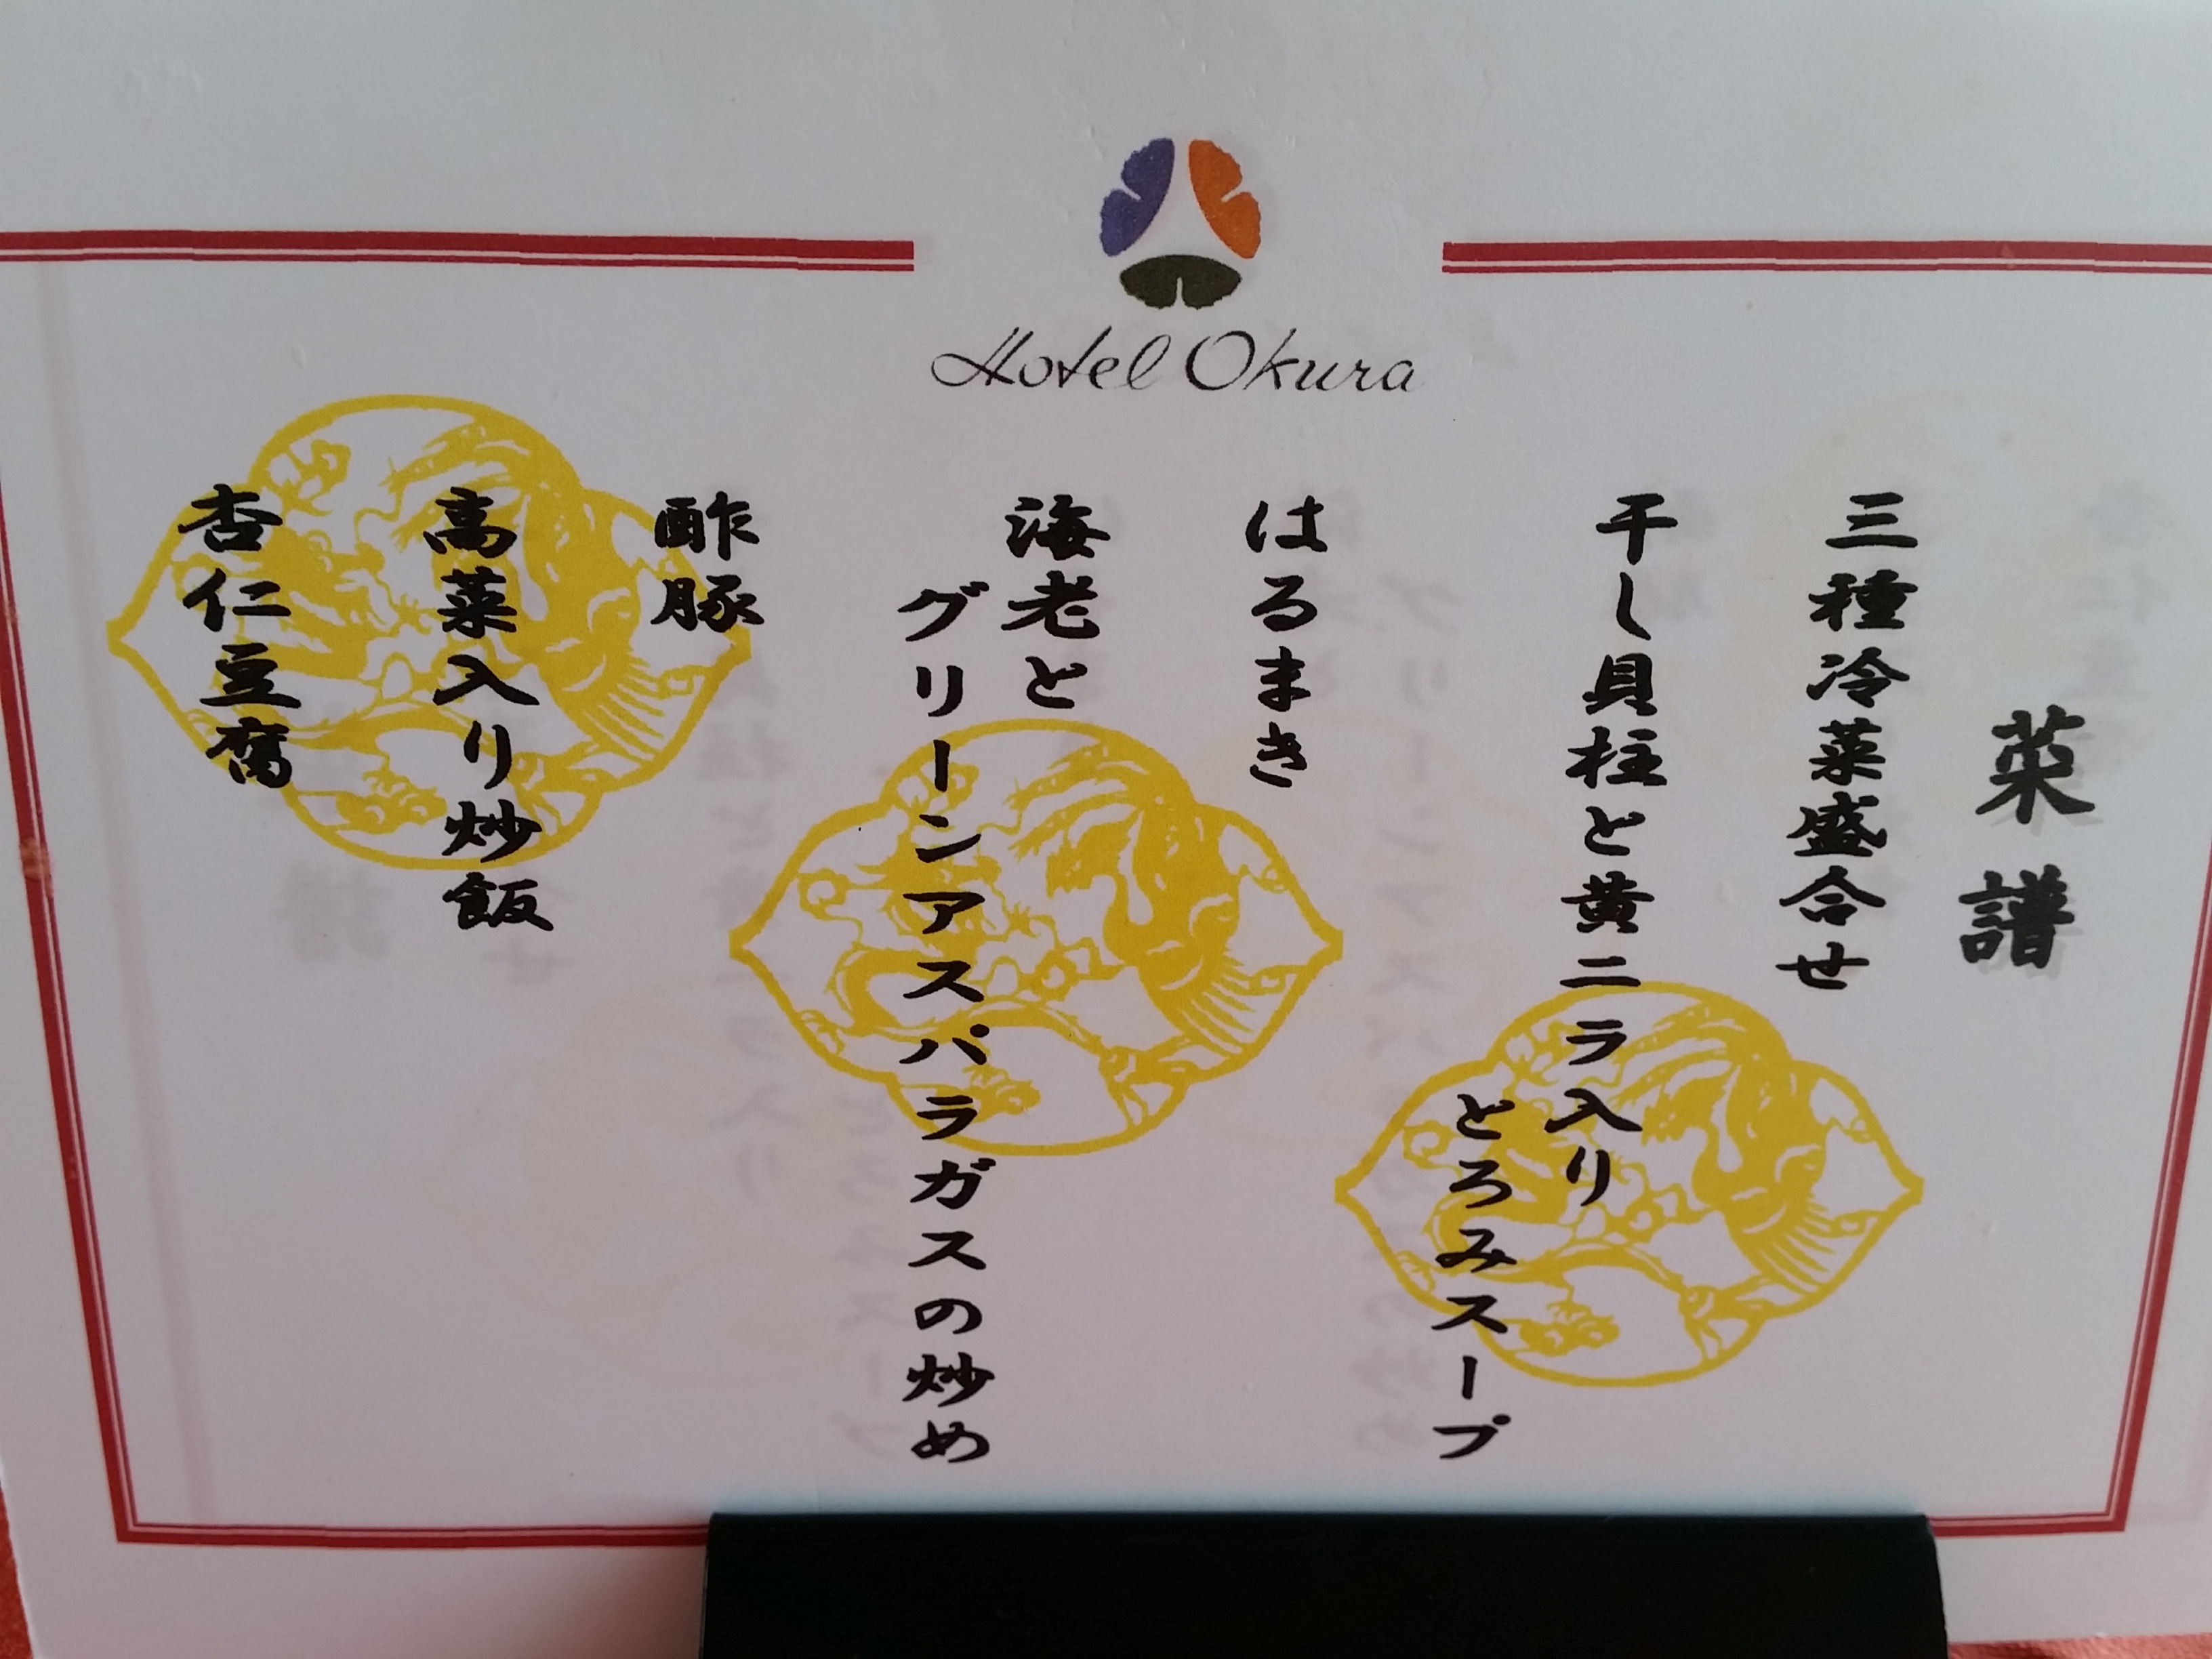 Hotel Okura
菜譜
三種冷菜盛合せ
干し貝柱と黄ニラ入り
とろみスープ
はるまき
海老と
グリーンアスパラガスの炒め
酢豚
高菜入り炒飯
杏仁豆腐